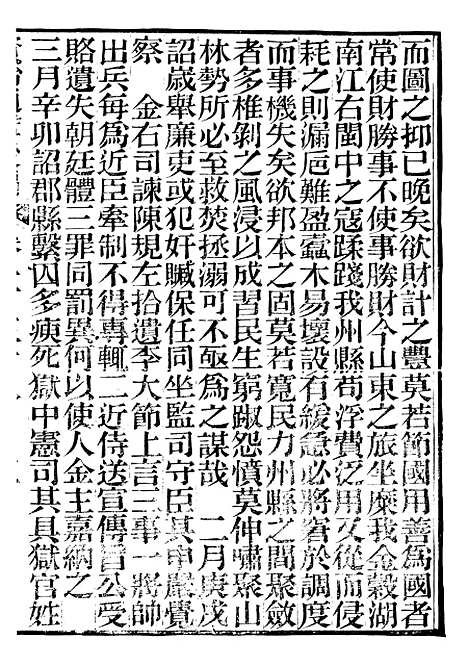 而圖之抑已晚矣欲財計之豐莫若節國用善爲國者
常使財勝事不使事勝財今山東之旅坐糜我金穀湖
南江右閩中之寇蹂踐我州縣苟浮費泛用又從而侵
耗之則漏巵難盈蠹木易壞設有緩急必將窘於調度
而事機失矣欲邦本之固莫若寬民力州縣之間聚斂
者多椎剝之風浸以成習民生窮踧怨憤莫伸嘯聚山
林勢所必至救焚拯溺可不亟爲之謀哉 二月庚戌
詔歲舉廉吏或犯奸贓保任同坐監司守臣其申嚴覺
察 金右司諫陳規左拾遺李大節上言三事一將帥
出兵每爲近臣牽制不得專輒二近侍送宣傳旨公受
賂遺失朝廷體三罪同罰異何以使人金主嘉納之
三月辛卯詔郡縣繫囚多瘐死獄中憲司其具獄官姓